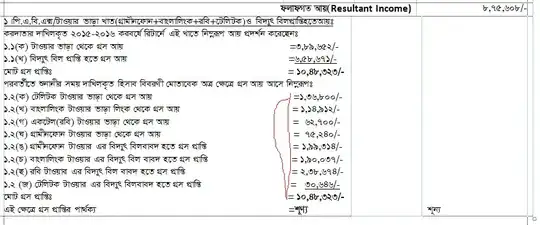 ফলাফলাগত আয়(Resultant Income) ৮,৭৫,৬০৮/-
১.পি.এ.বি.এক্স/টাওয়ার ভাড়া খাত(গ্রামীনফোন+বাংলালিংক+রবি+টেলিটক)ও বিদ্যুৎ বিলপ্রাপ্তিহতেআয়ঃ
করদাতার দাখিলকৃত ২০১৫-২০১৬ করবর্ষে রিটার্নে এই খাতে নিম্নরূপ আয় প্রদর্শন করেছেনঃ
১.১(ক) টাওয়ার ভাড়া থেকে গ্রস আয় =৩,৮৯,৬৫২/-
১.১(খ) বিদ্যুৎ বিল প্রাপ্তি হতে গ্রস আয় =৬,৫৮,৬৭১/-
মোট গ্রস প্রাপ্তিঃ = ১০,৪৮,৩২৩/-
পরবর্তীতে শুনানীর সময় দাখিলকৃত হিসাব বিবরণী মোতাবেক অত্র ক্ষেত্রে গ্রস আয় আসে নিম্নরূপঃ
১.২(ক) টেলিটক টাওয়ার ভাড়া থেকে গ্রস আয় =১,৩৬,৮০০/-
১.২(খ) বাংলালিংক টাওয়ার ভাড়া লিংক থেকে গ্রস আয় = ১,১৪,৯১২/-
১.২(গ) একটেল(রবি) টাওয়ার ভাড়া থেকে গ্রস আয় = ৬২,৭০০/-
১.২(ঘ) গ্রামীনফোন টাওয়ার ভাড়া থেকে গ্রস আয় = ৭৫,২৪০/-
১.২(ঙ) গ্রামীনফোন টাওয়ার এর বিদ্যুৎ বিলবাবদ হতে গ্রস প্রাপ্তি = ১,৯৯,৩১৪/-
১.২(চ) বাংলালিংক টাওয়ার এর বিদ্যুৎ বিল বাবদ হতে গ্রস প্রাপ্তি = ১,৯০,০৩৭/-
১.২(ছ) রবি টাওয়ার এর বিদ্যুৎ বিল বাবদ হতে গ্রস প্রাপ্তি = ২,৩৮,৬৭৪/-
১.২ (জ) টেলিটক টাওয়ার এর বিদ্যুৎ বিলবাবদ হতে গ্রস প্রাপ্তি = ৩০,৬৪৬/-
মোট গ্রস প্রাপ্তিঃ = ১০,৪৮,৩২৩/-
এই ক্ষেত্রে গ্রস প্রাপ্তির পার্থক্য =শূণ্য শূন্য